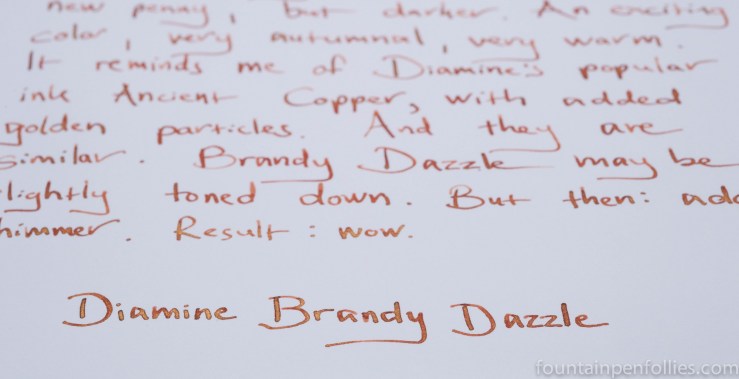 new penny, but darker. An exciting
color, very autumnal, very warm.
It reminds me of Diamine's popular
ink Ancient Copper, with added
golden particles. And they are
similar. Brandy Dazzle may be
slightly toned down. But then: add
shimmer. Result: wow.
Diamine Brandy Dazzle
fountainpenfollies.com